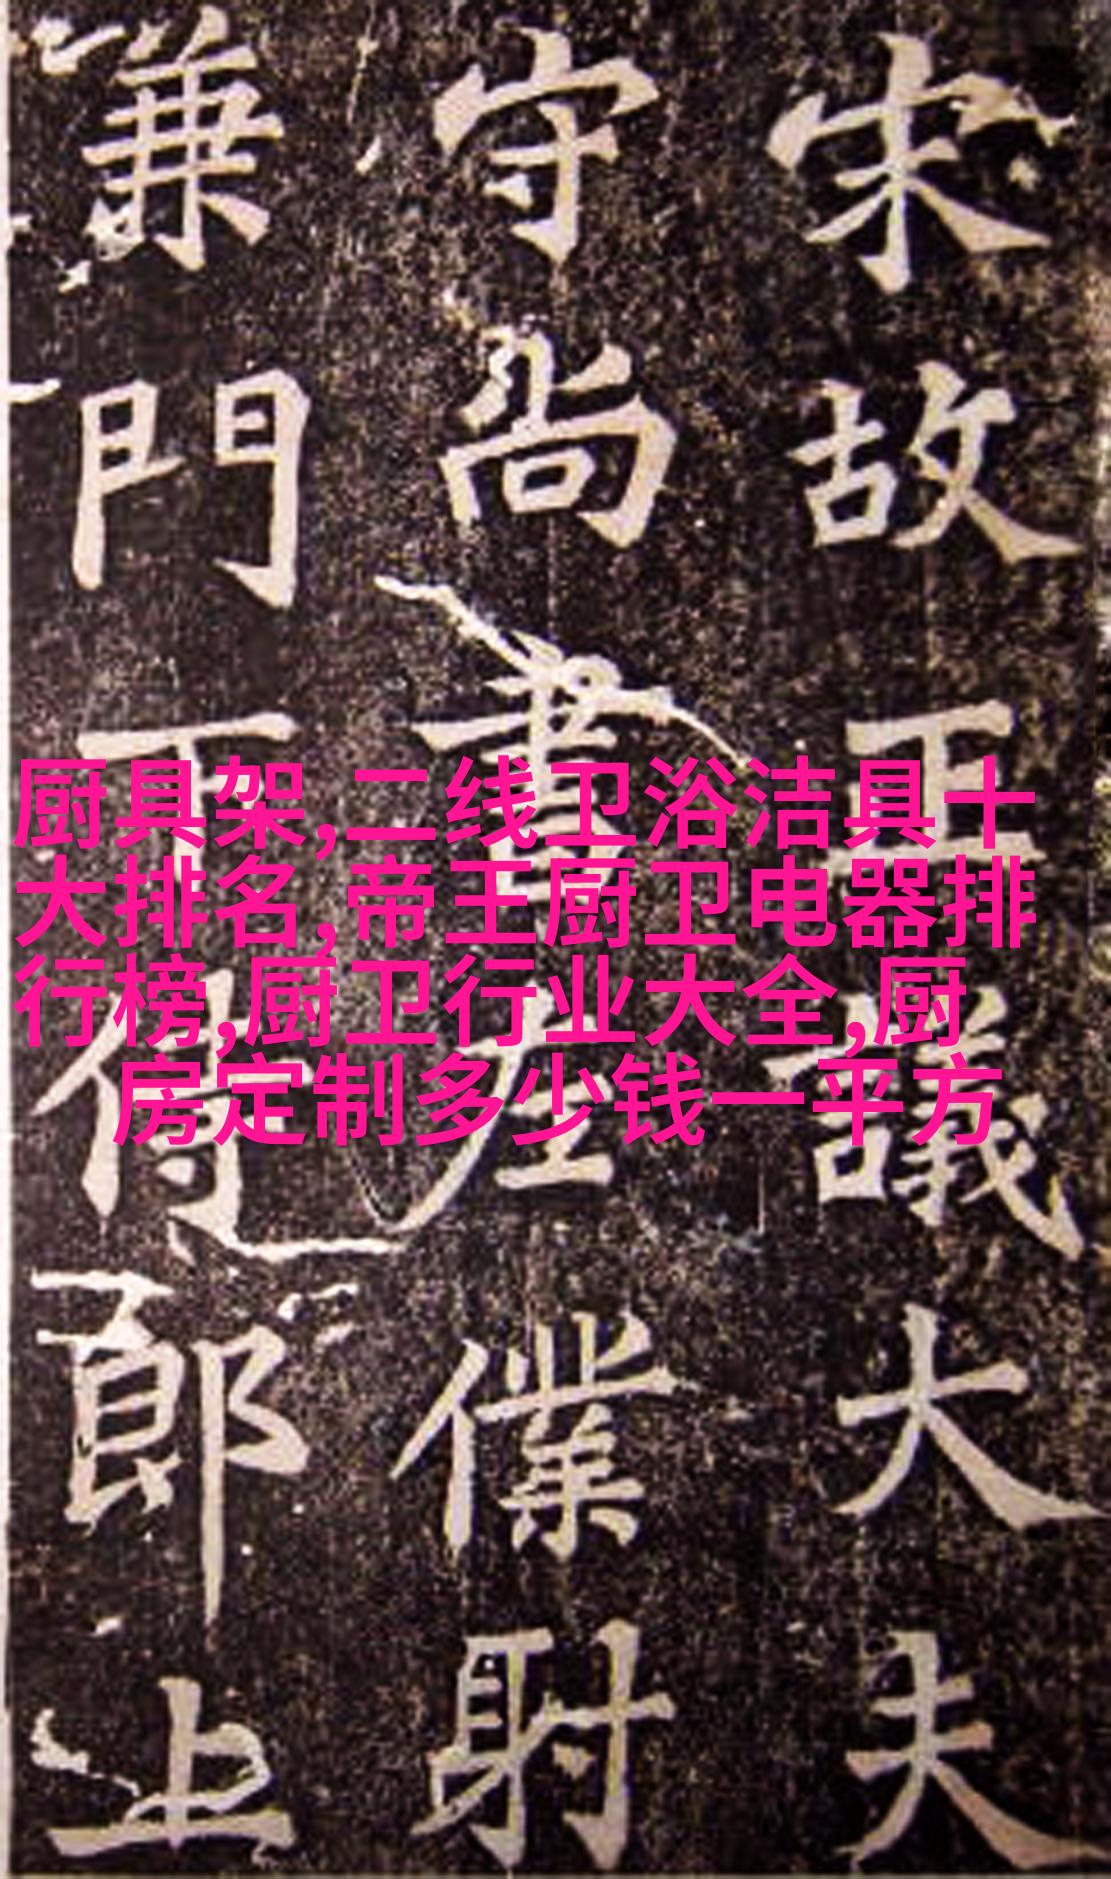 宋故正議大夫
守尚書左僕射
兼門下侍郎上
厨具架,二线卫浴洁具十
大排名,帝王厨卫电器排
行榜,厨卫行业大全,厨
房定制多少钱一平方